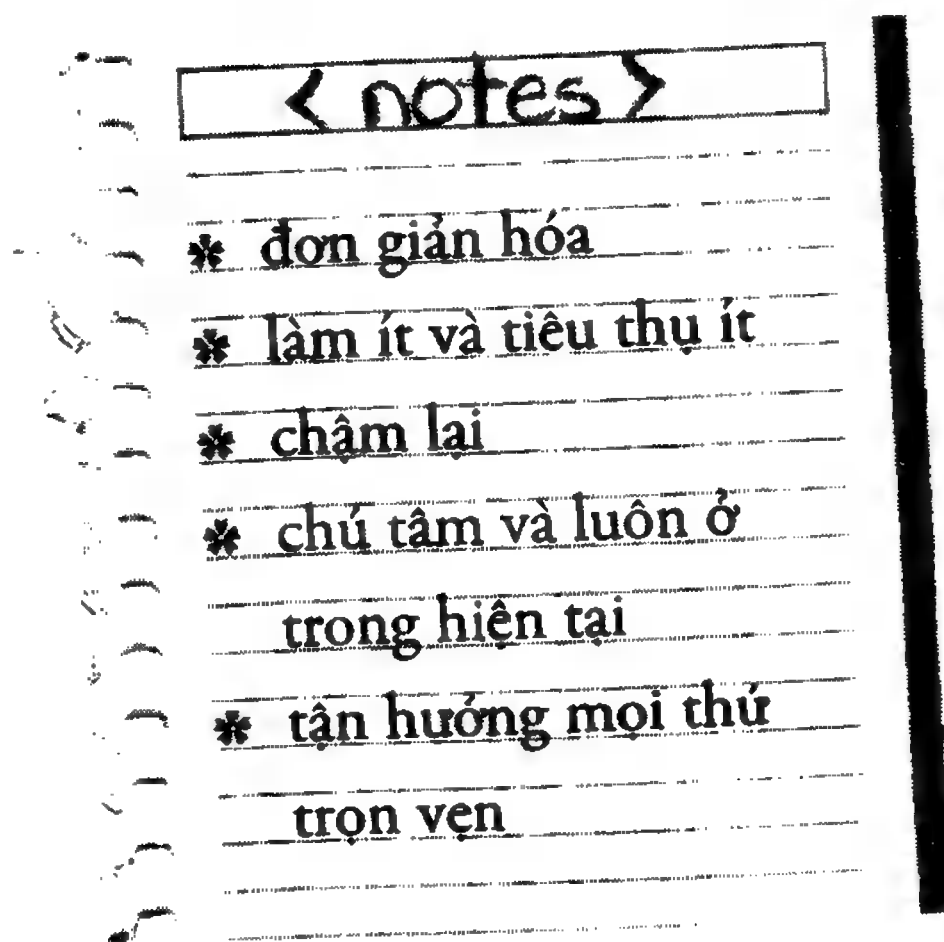 < notes >
* đơn giản hóa
* làm ít và tiêu thụ ít
* chậm lại
* chú tâm và luôn ở
trong hiện tại
* tận hưởng mọi thứ
trọn vẹn